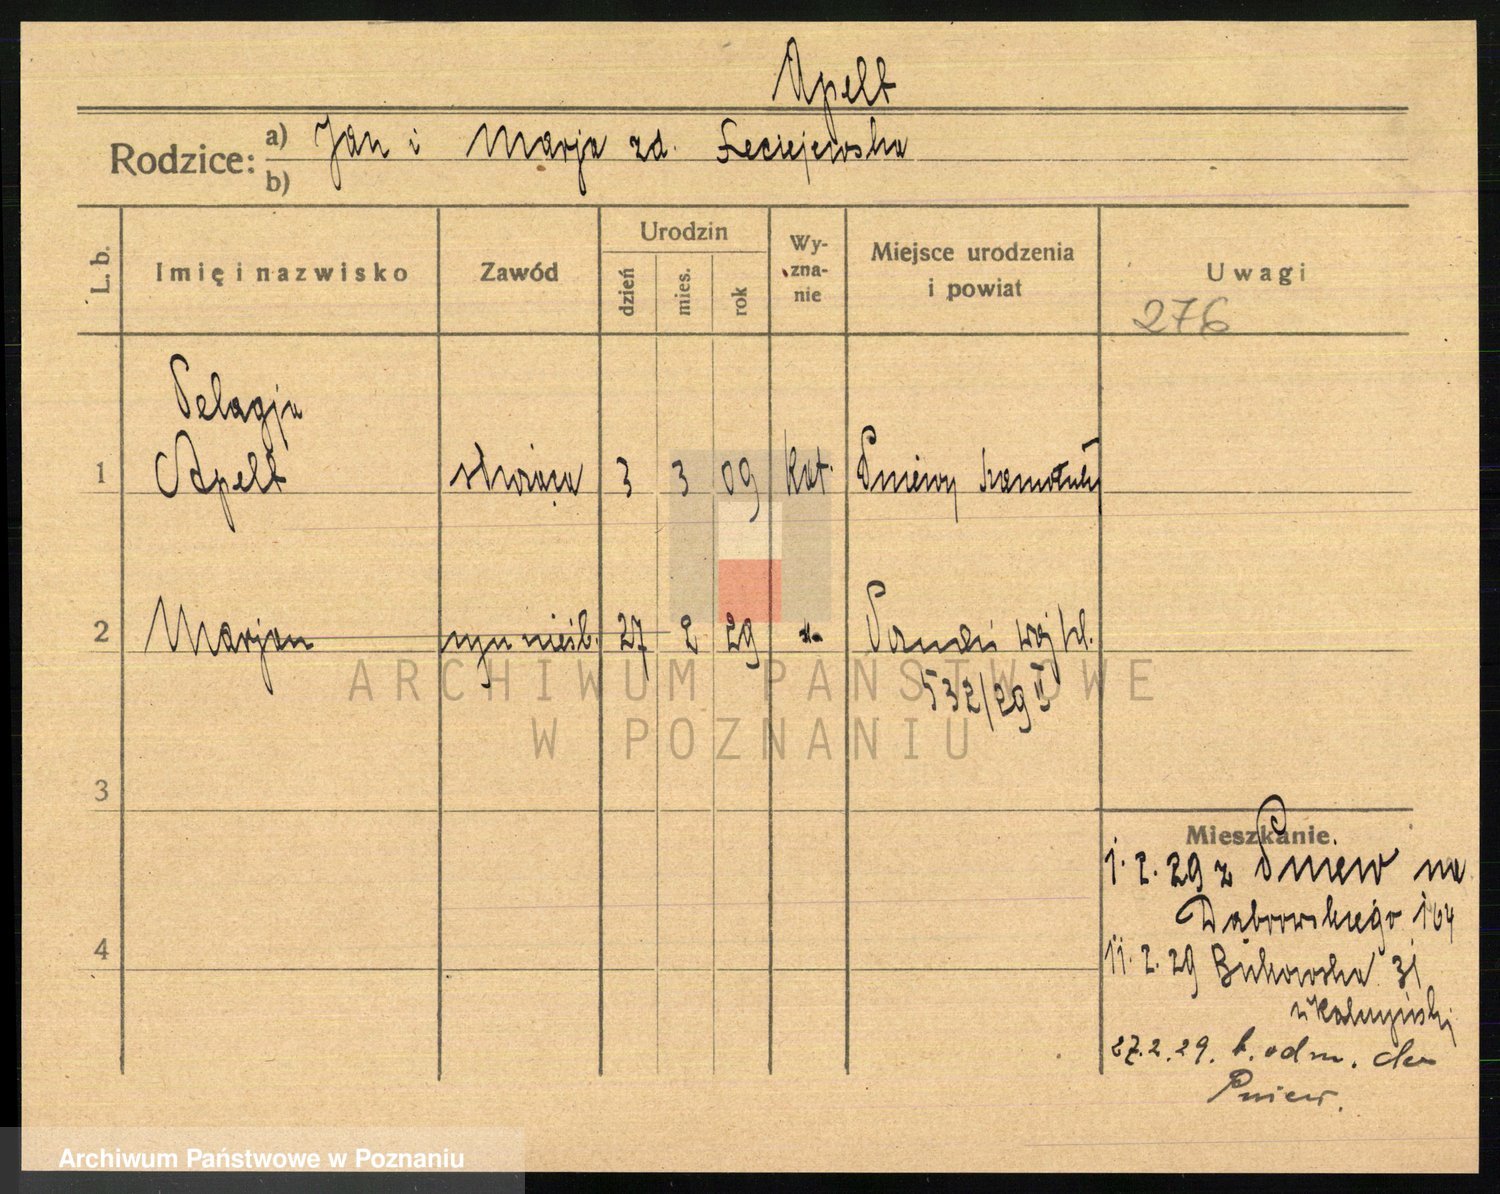 Apelt
Rodzice: a) Jan i Marja zd. Łeciejewska
b)
L. b. Imię i nazwisko Zawód Urodzin dzień mies. rok Wy-zna-nie Miejsce urodzenia i powiat Uwagi
276
Pelagja
1 Apelt służąca 3 3 09 kat. Pniewy Szamotuły
2 Marjan syn nieśl. 27 2 29 -"- Poznań
532/29 II
3
Mieszkanie.
1.2.29 z Pniew na
Dąbrowskiego 104
4
11.2.29 Bukowska 31
27.2.29. b. odm. do
Pniew.
ARCHIWUM PAŃSTWOWE
W POZNANIU
Archiwum Państwowe w Poznaniu